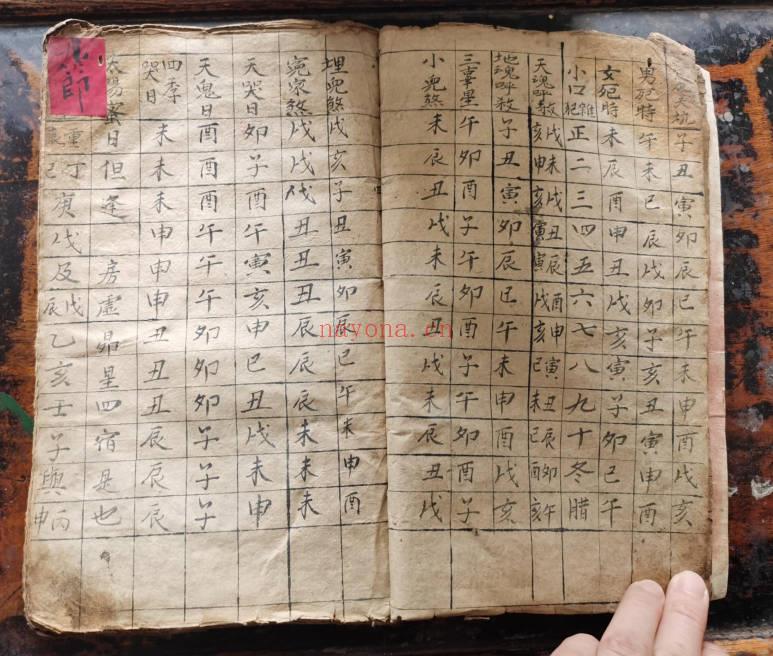 天坑子丑寅卯辰巳午未申酉戌亥
男犯時午未巳辰戌卯子亥丑寅申酉
女犯時未辰酉申丑戌亥寅子卯巳午
小口犯雜正二三四五六七八九十冬腊
天魂呼殺戌未戌丑辰酉申寅丑辰卯午
亥申亥寅寅戌亥巳未巳酉亥
地魂呼殺子丑寅卯辰巳午未申酉戌亥
三重星午卯酉子午卯酉子午卯酉子
小児煞未辰丑戌未辰丑戌未辰丑戌
埋児煞戌亥子丑寅卯辰巳午未申酉
冤家煞戌戌戌丑丑丑辰辰辰未未未
天哭日卯子酉午寅亥申巳丑戌未申
天鬼日酉酉酉午午午卯卯卯子子子
四季哭日未未未申申申丑丑丑辰辰辰
陽蜜日但逢房虚昴星四宿是也
重丁巳庚戌及戊辰乙亥壬子與丙申
郎
nayona.cn